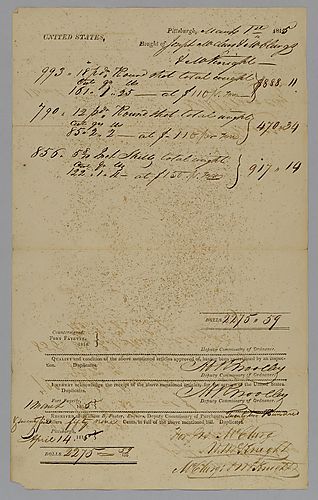 Pittsburgh, March 1st 1815
UNITED STATES,
Bought of Joseph McClurg
& McKnight
993 - 18 pdr Round shot total weight
Cwt qrs lbs
161. 1. 25 - at $110 pr Ton } $888. 11
790 - 12 pdr Round shot total weight
Cwt qrs lbs
85. 2. 2 - at $110 pr Ton } 470. 34
856 - 5½ Inch Shells total weight
Cwt qr lbs
122. 1. at $150 pr Ton } 917. 14
DOLLS 2275. 59
Countersigned,
FORT FAYETTE,
181
Deputy Commissary of Ordnance.
QUALITY and condition of the above mentioned articles approved of, having been examined by an inspection. Duplicates.
Woolley
Deputy Commissary of Ordnance.
I HEREBY acknowledge the receipt of the above mentioned articles, for the service of the United States.
Duplicates.
Fort Fayette,
1 March 1815
Woolley
Deputy Commissary of Ordnance.
RECEIVED of Foster, Esquire, Deputy Commissary of Purchases, hundred
Seventy five fifty nine Cents, in full of the above mentioned bill. Duplicates.
Pittsburgh,
April 14 1815
DOLLS 2275 - 59
McClurg
McKnight
McClurg & McKnight